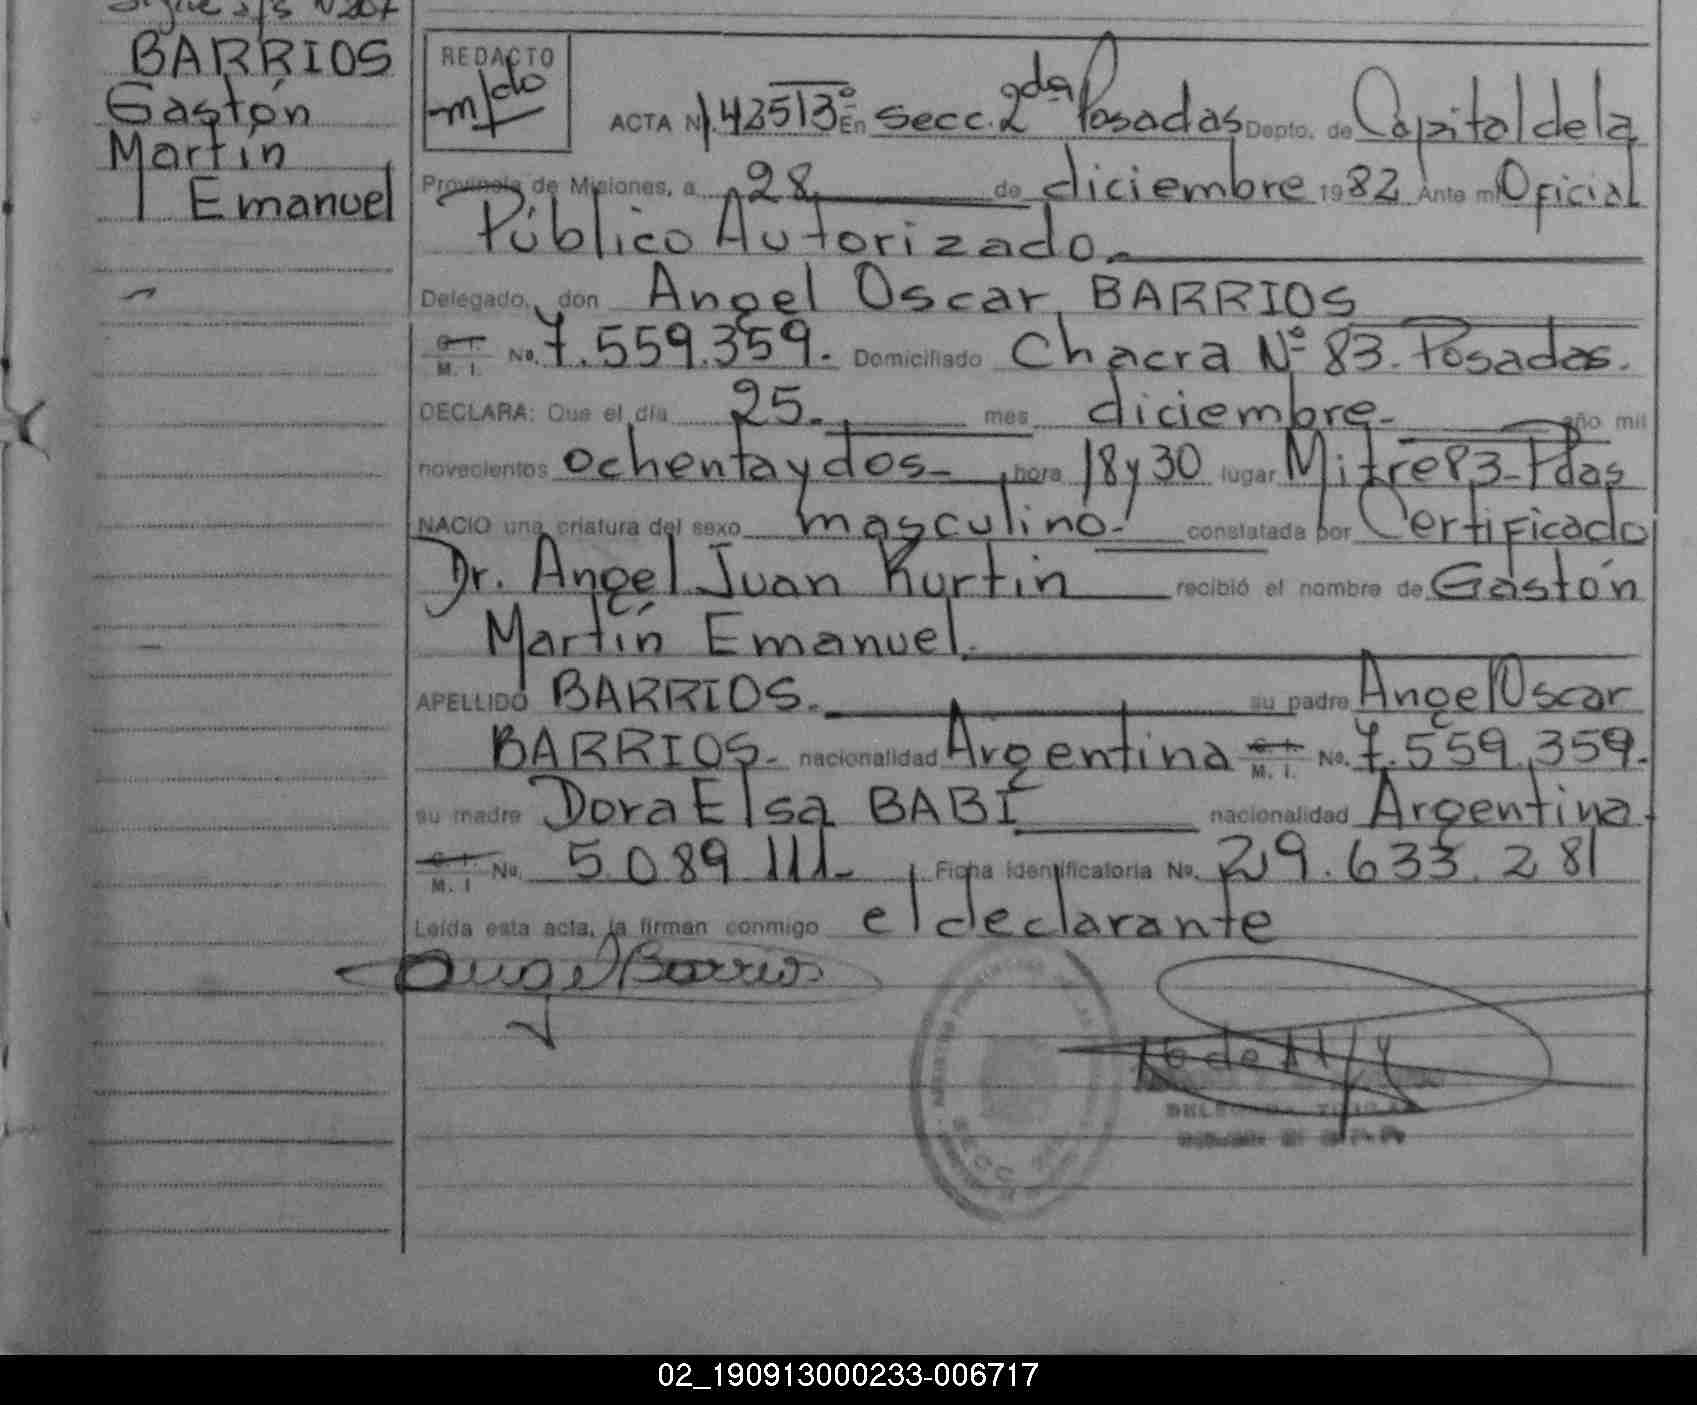 BARRIOS
Gastón
Martín
Emanuel
REDACTO
m/do
ACTA N°. 42513 En Secc. 2da Posadas Depto. de Capital de la
Provincia de Misiones, a 28 de diciembre 1982 Ante mi Oficial
Público Autorizado.
Delegado, don Angel Oscar BARRIOS
C. I. M. I. No. 7.559.359. Domiciliado Chacra Nº 83. Posadas.
DECLARA: Que el día 25. mes diciembre. año mil
novecientos ochenta y dos hora 18 y 30 lugar Mitre 83 - Pdas
NACIO una criatura del sexo masculino. constatada por Certificado
Dr. Angel Juan Kurtin recibió el nombre de Gastón
Martín Emanuel.
APELLIDO BARRIOS. su padre Angel Oscar
BARRIOS. nacionalidad Argentina C. I. M. I. No. 7.559.359.
su madre Dora Elsa BABI nacionalidad Argentina
C. I. M. I No. 5.089 111. Ficha identificatoria No. 29.633.281
Leída esta acta, la firman conmigo el declarante
Angel Barrios
SECC
02_190913000233-006717